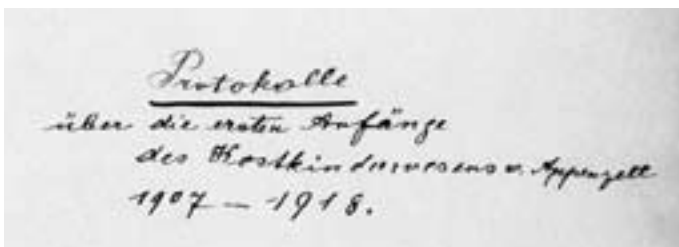 Protokolle
über die ersten Anfänge
des Kostkinderwesens v. Appenzell
1907 — 1918.